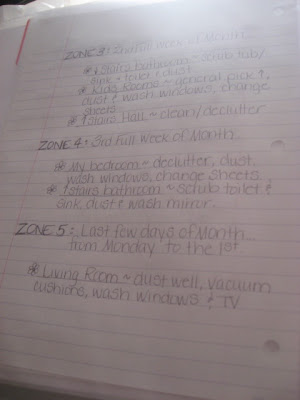 ZONE 3: 2nd full week of Month...
* ↓stairs bathroom ~ scrub tub/
sink + toilet & dust
* Kids Rooms ~ general pick ↑,
dust & wash windows, change
sheets
* ↑stairs Hall ~ clean/declutter
ZONE 4: 3rd Full Week of Month...
* My bedroom ~ declutter, dust,
wash windows, change sheets.
* ↑stairs bathroom ~ scrub toilet &
sink, dust & wash mirror.
ZONE 5: Last few days of Month...
from Monday to the 1st
* Living Room ~ dust well, vacuum
cushions, wash windows & TV